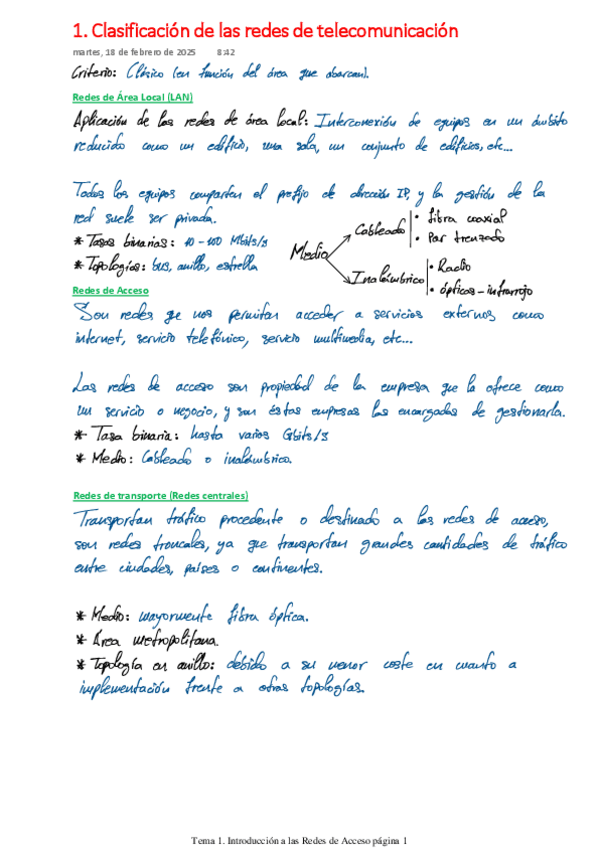 1. Clasificación de las redes de telecomunicación
martes, 18 de febrero de 2025 8:42
Criterio: Clásico (en función del área que abarcan).
Redes de Área Local (LAN)
Aplicación de las redes de área local: Interconexión de equipos en un ámbito
reducido como un edificio, una sala, un conjunto de edificios, etc...
Todos los equipos comparten el prefijo de dirección IP, y la gestión de la
red suele ser privada.
* Tasas binarias: 10-100 Mbits/s
* Topologías: bus, anillo, estrella
Medio
Cableado
• fibra coaxial
• Par trenzado
Inalámbrico
• Radio
• ópticos-infrarrojo
Redes de Acceso
Son redes qe nos permitan acceder a servicios externos como
internet, servicio telefónico, servicio multimedia, etc...
Las redes de acceso son propiedad de la empresa que la ofrece como
un servicio o negocio, y son éstas empresas las encargadas de gestionarla.
* Tasa binaria: hasta varios Gbits/s
* Medio: Cableado o inalámbrico.
Redes de transporte (Redes centrales)
Transportan tráfico procedente o destinado a las redes de acceso,
son redes troncales, ya que transportan grandes cantidades de tráfico
entre ciudades, países o continentes.
* Medio: mayormente fibra óptica.
* Área metropolitana
* Topología en anillo: debido a su menor coste en cuanto a
implementación frente a otras topologías.
Tema 1. Introducción a las Redes de Acceso página 1